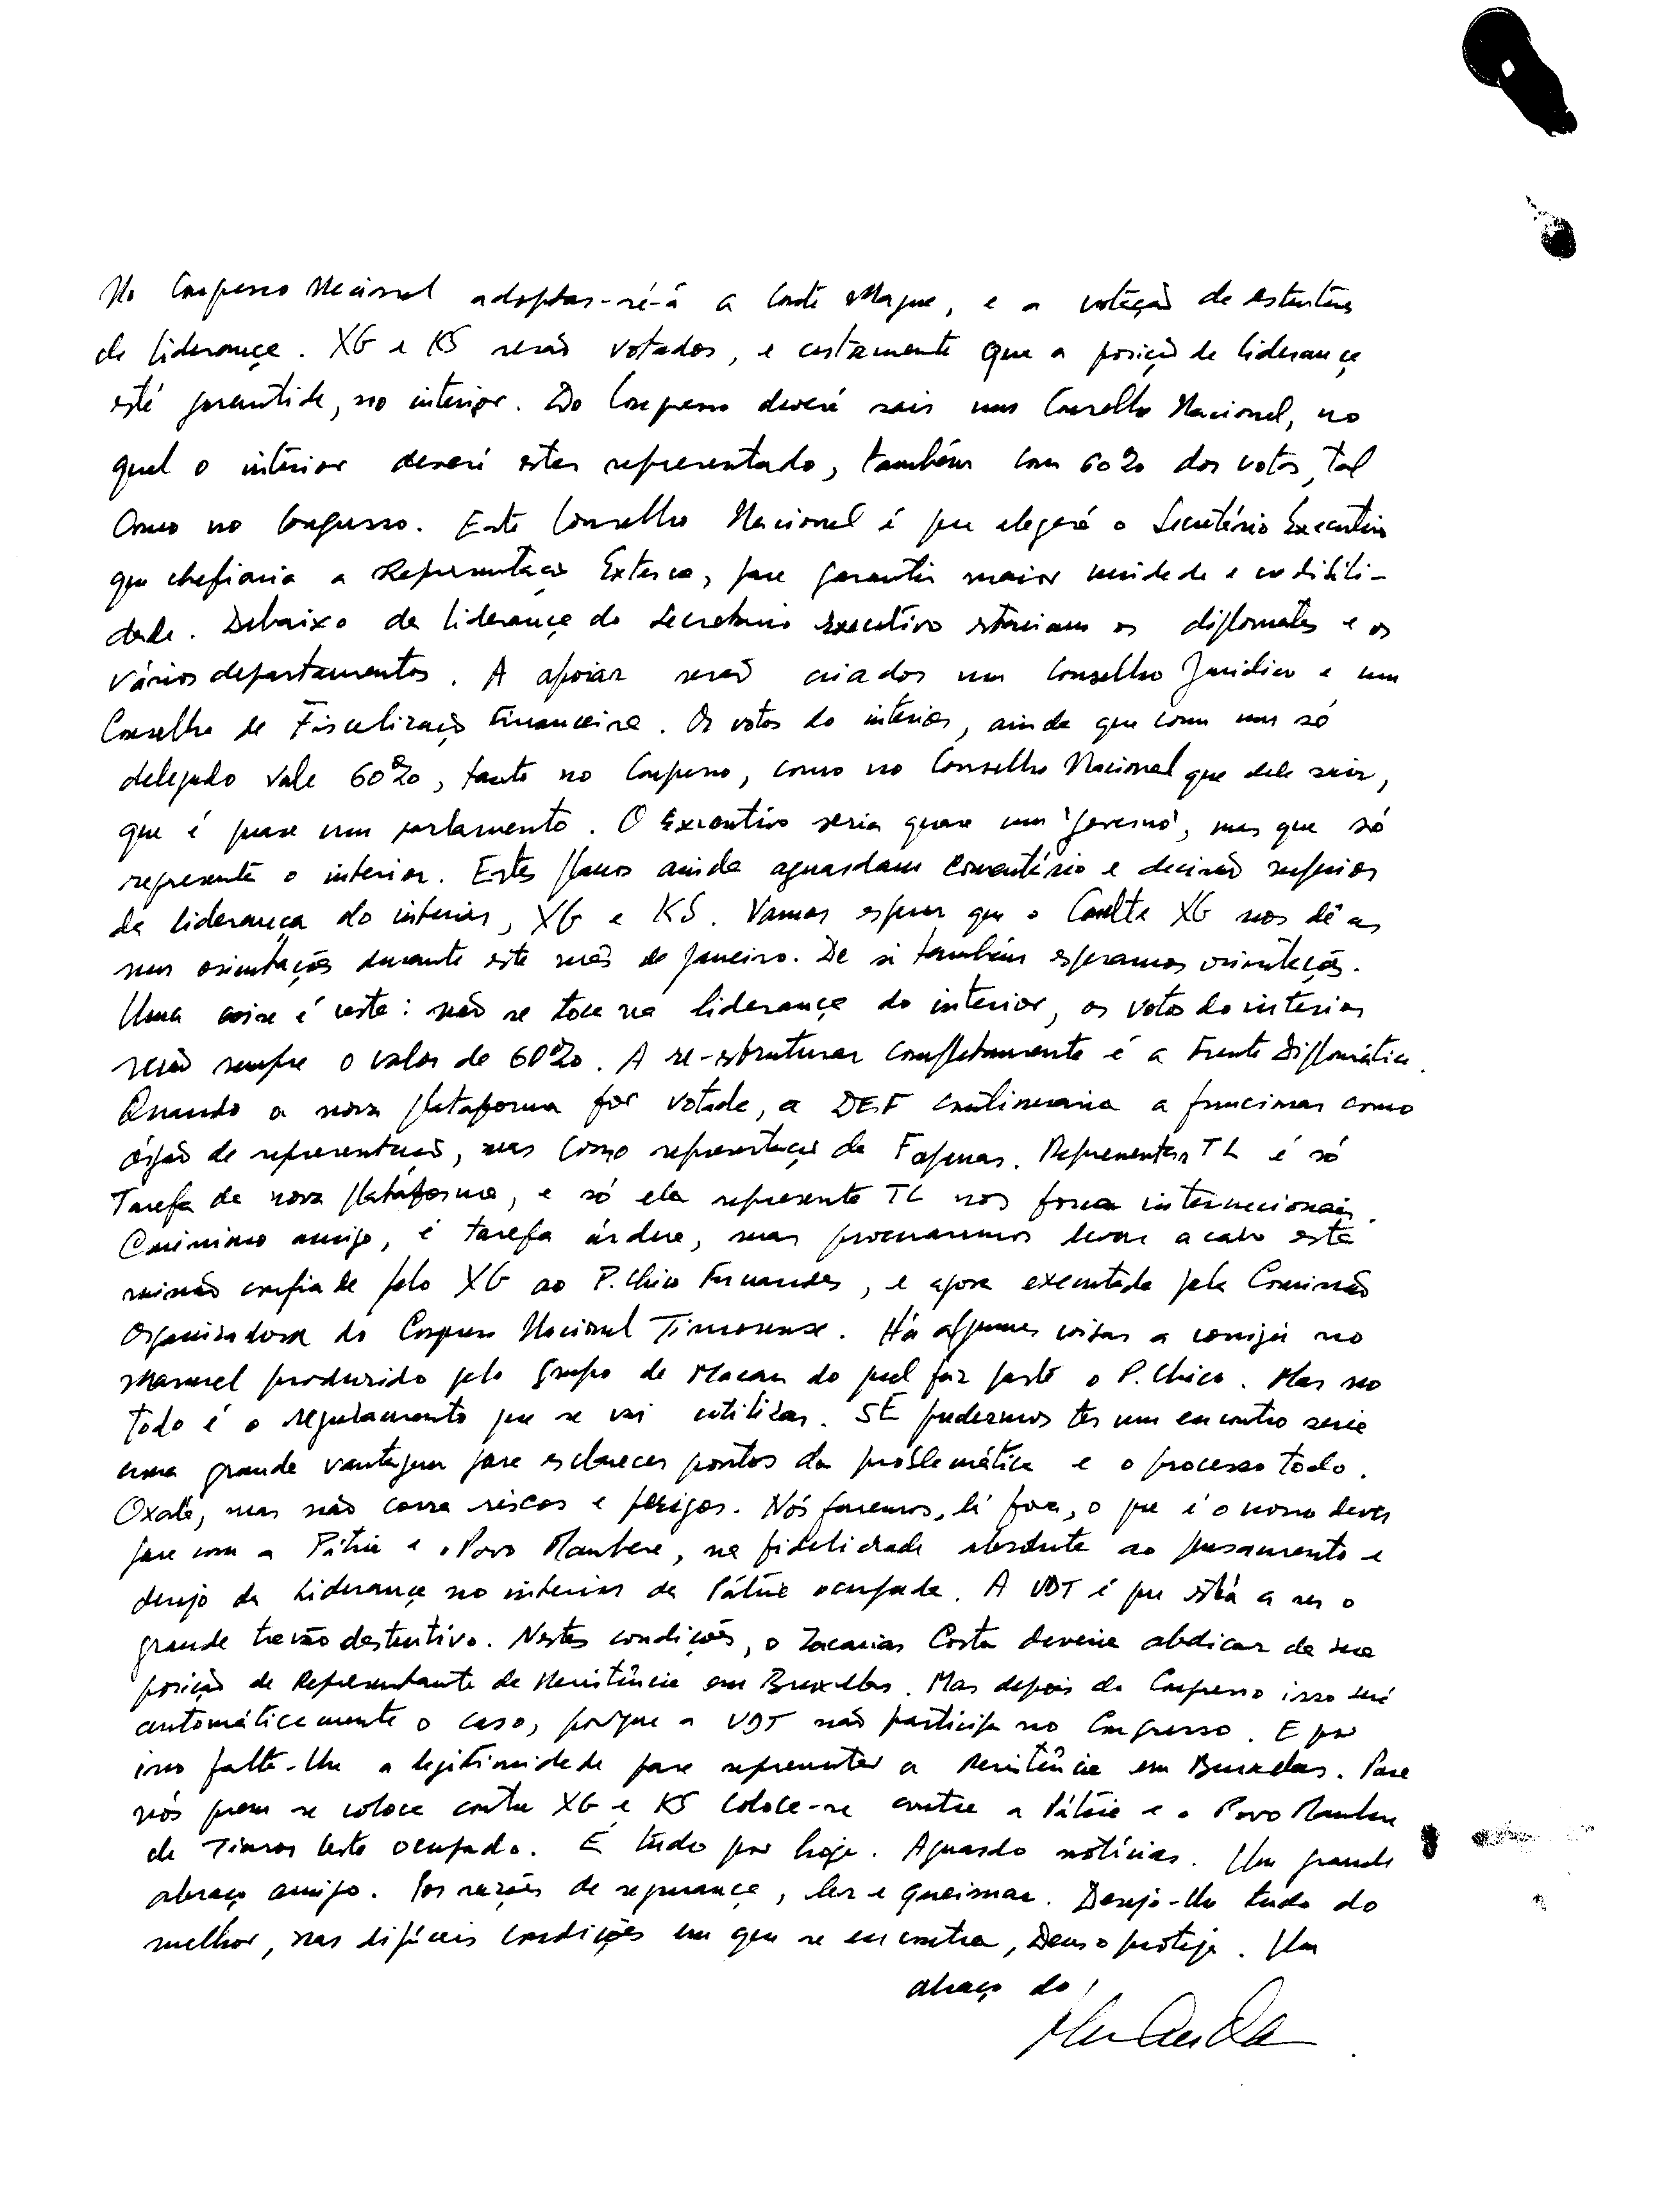 No Congresso Nacional adoptar-se-á a Carta Magna, e a votação de estrutura
de liderança. XG e KS serão votados, e certamente que a posição de liderança
está garantida, no interior. Do Congresso deverá sair um Conselho Nacional, no
qual o interior deverá estar representado, também com 60% dos votos, tal
como no Congresso. Este Conselho Nacional é que elegerá o Secretário Executivo
que chefiaria a Representação Externa, para garantir maior unidade e credibili-
dade. Debaixo da liderança do Secretario Executivo estariam os diplomatas e os
vários departamentos. A apoiar serão criados um Conselho Jurídico e um
Conselho de Fiscalização Financeira. Os votos do interior, ainda que com um só
delegado vale 60%, tanto no Congresso, como no Conselho Nacional que dele sair,
que é quase um parlamento. O Executivo seria quase um 'governo', mas que só
representa o interior. Estes planos ainda aguardam comentário e decisão superior
da liderança do interior, XG e KS. Vamos esperar que o XG nos dê as
suas orientações durante este mês de Janeiro. De si também esperamos orientação.
Uma coisa é certa: não se toca na liderança do interior, os votos do interior
serão sempre o valor de 60%. A re-estruturar completamente é a Frente Diplomática.
Quando a nova plataforma for votada, a DEF continuaria a funcionar como
órgão de representação, mas como representação da F apenas. Representar TL é só
Tarefa da nova plataforma, e só ela representa TL nos foruns internacionais.
Caríssimo amigo, é tarefa árdua, mas procuraremos levar a cabo esta
missão confiada pelo XG ao P. Chico Fernandes, e agora executada pela Comissão
Organizadora do Congresso Nacional Timorense. Há algumas coisas a corrigir no
manual produzido pelo grupo de Macau do qual faz parte o P. Chico. Mas no
todo é o regulamento que se vai utilizar. SE pudermos ter um encontro seria
uma grande vantagem para esclarecer pontos da problemática e o processo todo.
Oxalá, mas não corra riscos e perigos. Nós faremos, lá fora, o que é o nosso dever
para com a Pátria e o Povo Maubere, na fidelidade absoluta ao pensamento e
desejo da Liderança no interior da Pátria ocupada. A UDT é que está a ser o
grande travão destrutivo. Nestas condições, o Zacarias Costa deveria abdicar da sua
posição de Representante da Resistência em Bruxelas. Mas depois do Congresso isso será
automáticamente o caso, porque a UDT não participa no Congresso. E por
isso falta-lhe a legitimidade para representar a Resistência em Bruxelas. Para
nós quem se coloca contra XG e KS coloca-se contra a Pátria e o Povo Maubere
de Timor Leste ocupado. É tudo por hoje. Aguardo notícias. Um grande
abraço amigo. Por razões de segurança, ler e queimar. Desejo-lhe tudo do
melhor, nas difíceis condições em que se encontra, Deus o proteja. Um
abraço do